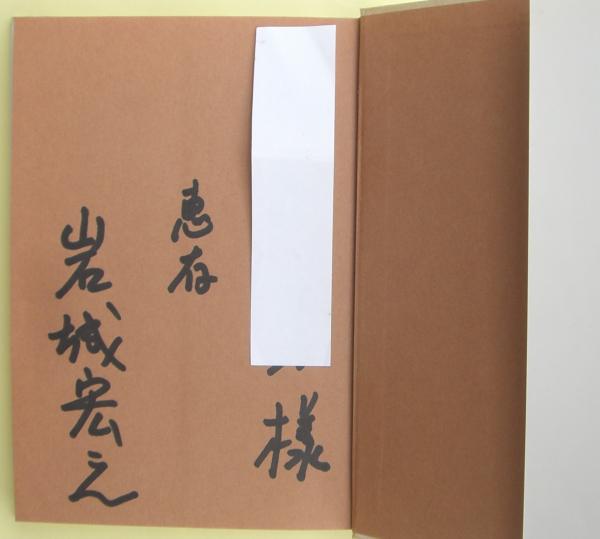 様
恵存
岩城宏之